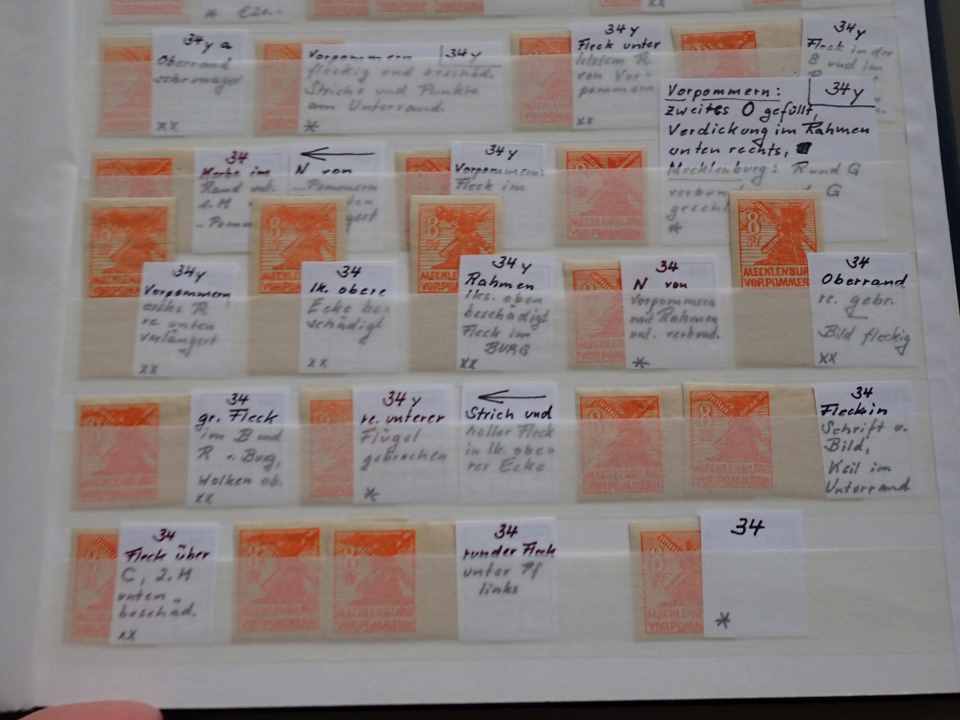 * €20.-
**
34 y a
Oberrand
xx
34 y
Vorpommern
fleckig und beschäd.
Striche und Punkte
am Unterrand.
*
34 y
Fleck unter
letztem R
von Vor-
pommern
xx
34 y
Fleck in der
B und im
34 y
Vorpommern:
zweites O gefüllt,
Verdickung im Rahmen
unten rechts,
Mecklenburg: R und G
*
34
Rand
N von
34 y
Vorpommern:
Fleck im
8
8
8
8
Pf
MECKLENBURG
VORPOMMERN
34 y
Vorpommern
erstes R
re. unten
verlängert
xx
34
lk. obere
Ecke be-
schädigt
xx
34 y
Rahmen
lks. oben
beschädigt
Fleck im
BURG
xx
34
N von
Vorpommern
mit Rahmen
unt. verbund.
*
34
Oberrand
re. gebr.
Bild fleckig
xx
34
gr. Fleck
im B und
R v. Burg,
Wolken ob.
xx
34 y
re. unterer
Flügel
gebrochen
*
Strich und
heller Fleck
in lk. obe-
rer Ecke
34
Fleck in
Schrift u.
Bild,
Keil im
Unterrand
34
Fleck über
C, 2. M
unten
beschäd.
xx
34
runder Fleck
unter Pf
links
34
*
MECKLEN
VORPOMM